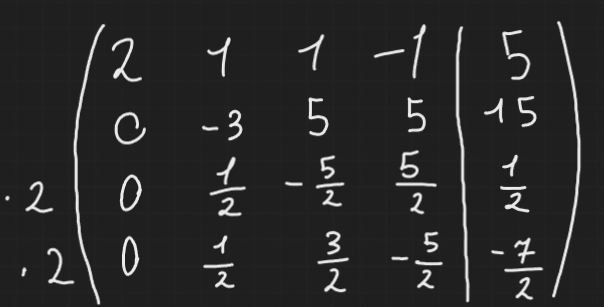 2 1 1 -1 | 5
0 -3 5 5 | 15
· 2 0 1/2 -5/2 5/2 | 1/2
· 2 0 1/2 3/2 -5/2 | -7/2